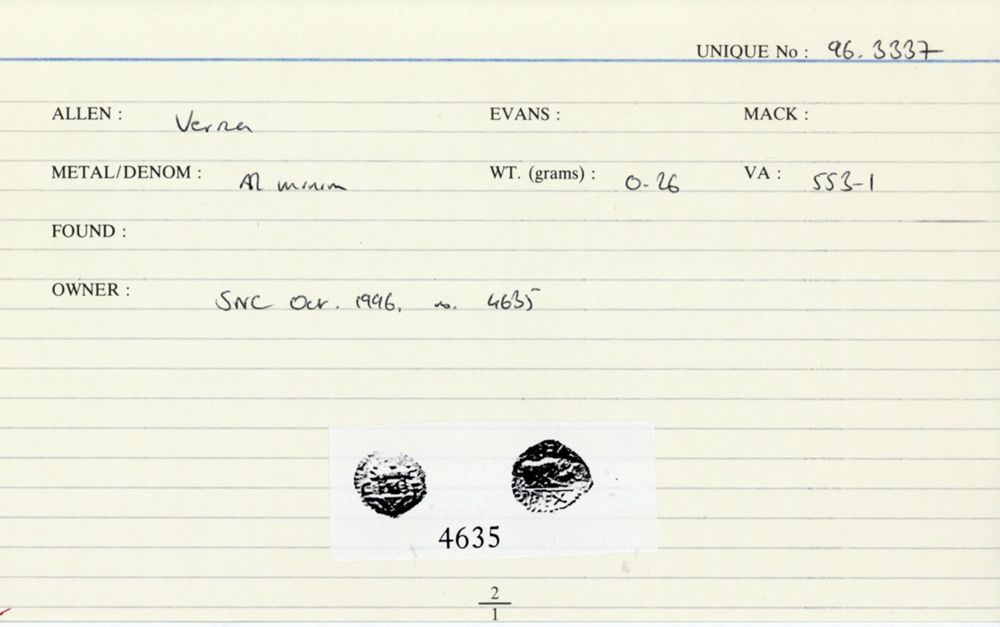 UNIQUE No : 96. 3337
ALLEN : Verica EVANS : MACK :
METAL/DENOM : AR minim WT. (grams) : 0.26 VA : 553-1
FOUND :
OWNER : SNC Oct. 1996, no. 4635
4635
2
1